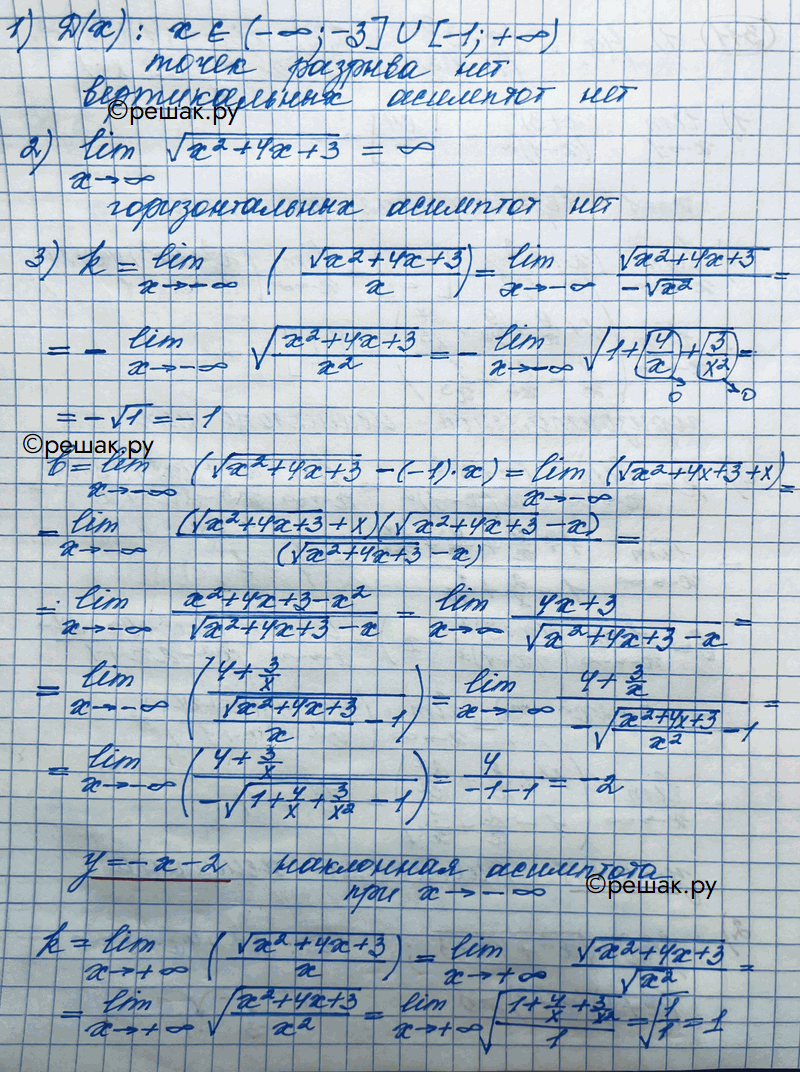 1) D(x): x ∈ (-∞; -3] ∪ [-1; +∞)
точек разрыва нет
вертикальных асимптот нет
©решак.ру
2) lim x→∞ √(x²+4x+3) = ∞
горизонтальных асимптот нет
3) k = lim x→-∞ (√(x²+4x+3)/x) = lim x→-∞ √(x²+4x+3)/(-√x²) =
= - lim x→-∞ √((x²+4x+3)/x²) = - lim x→-∞ √(1+4/x+3/x²) =
0 0
= -√1 = -1
©решак.ру
b = lim x→-∞ (√(x²+4x+3) - (-1)·x) = lim x→-∞ (√(x²+4x+3)+x) =
= lim x→-∞ (√(x²+4x+3)+x)(√(x²+4x+3)-x)/(√(x²+4x+3)-x) =
= lim x→-∞ (x²+4x+3-x²)/(√(x²+4x+3)-x) = lim x→∞ (4x+3)/(√(x²+4x+3)-x) =
= lim x→-∞ ((4+3/x)/(√(x²+4x+3)/x - 1)) = lim x→-∞ (4+3/x)/(-√((x²+4x+3)/x²) - 1) =
= lim x→-∞ ((4+3/x)/(-√(1+4/x+3/x²) - 1)) = 4/(-1-1) = -2
y = -x-2 наклонная асимптота
при x→-∞
©решак.ру
k = lim x→+∞ (√(x²+4x+3)/x) = lim x→+∞ √(x²+4x+3)/√x² =
= lim x→+∞ √((x²+4x+3)/x²) = lim x→+∞ √((1+4/x+3/x²)/1) = √(1/1) = 1